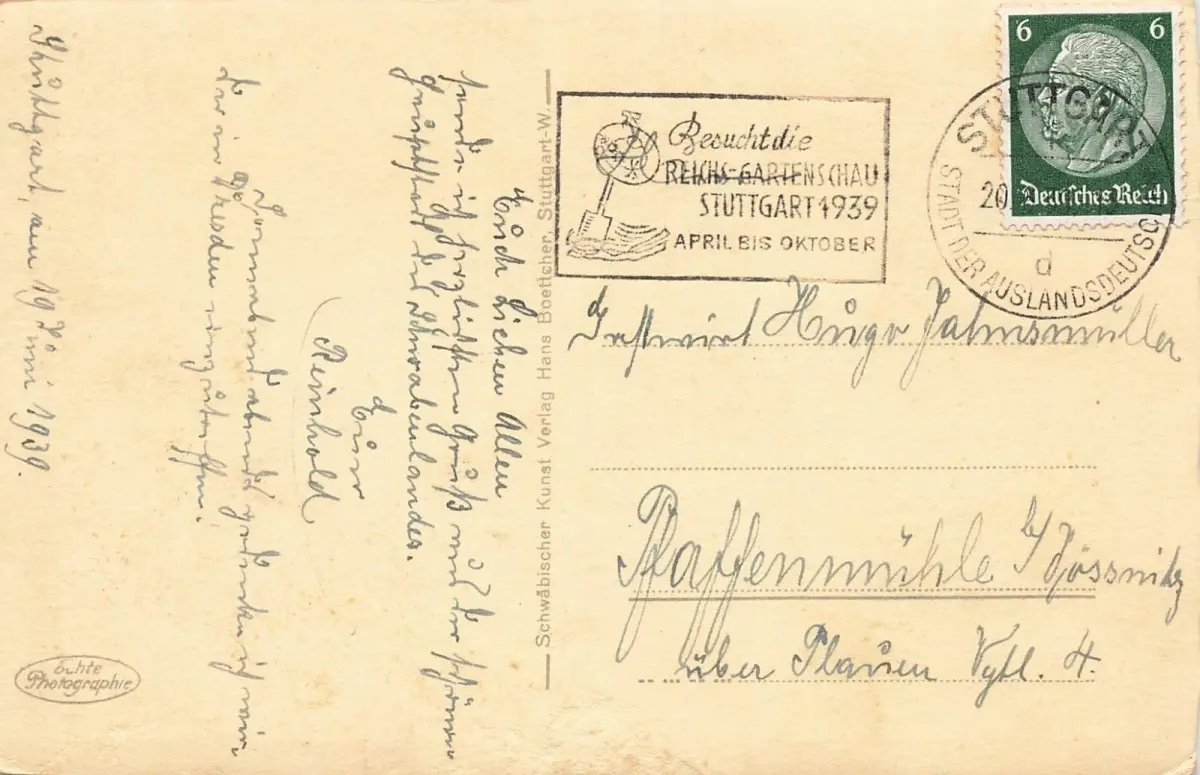 Stuttgart, am 19 Juni 1939.
Euch Lieben Allen
sende ich herzlichsten Gruß aus der schönen
Hauptstadt des Schwabenlandes.
Euer
Reinhold
Sonnabend abend gedenke ich wieder
in Dresden einzutreffen.
echte
Photographie
Schwäbischer Kunst Verlag Hans Boettcher, Stuttgart-W.
Besucht die
REICHS-GARTENSCHAU
STUTTGART 1939
APRIL BIS OKTOBER
6 6
Deutsches Reich
STUTTGART
20.
d
STADT DER AUSLANDSDEUTSCH
Gastwirt Hugo Jahnsmüller
Pfaffenmühle b/ Jössnitz
über Plauen Vgtl. 4.